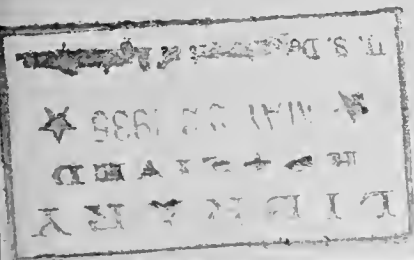 LIBRARY
RECEIVED
★ MAY ★
U. S. Department of Agriculture